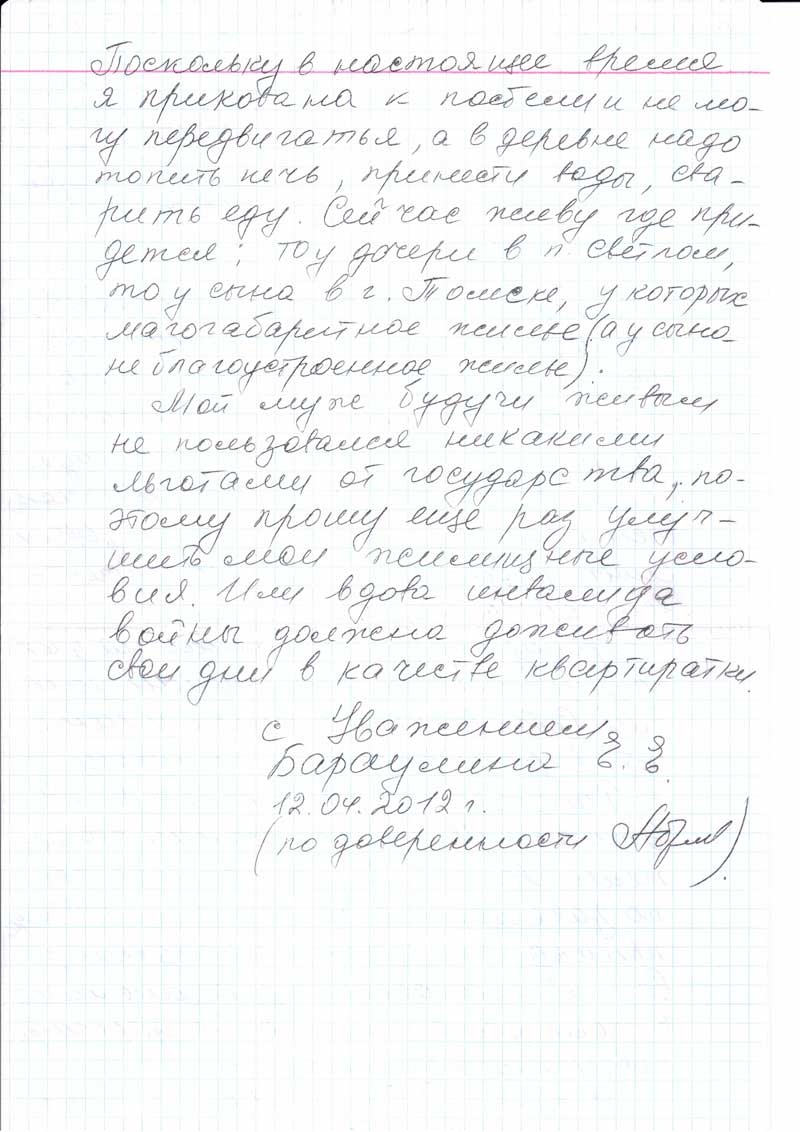 Поскольку в настоящее время
я прикована к постели и не мо-
гу передвигаться, а в деревне надо
топить печь, принести воды, сва-
рить еду. Сейчас живу где при-
детсе; то у дочери в п. Светлом,
то у сына в г. Томске, у которых
магогабаритное жилье (а у сына-
не благоустроенное жилье).
Мой муж будучи живым
не пользовался никакими
льготами от государства, по-
этому прошу еще раз улуч-
шить мои жилищные усло-
вия. Или вдова инвалида
войны должна доживать
свои дни в качестве квартиратки.
С Уважением
Бараулина Е. Я.
12.04.2012 г.
(по доверенности )